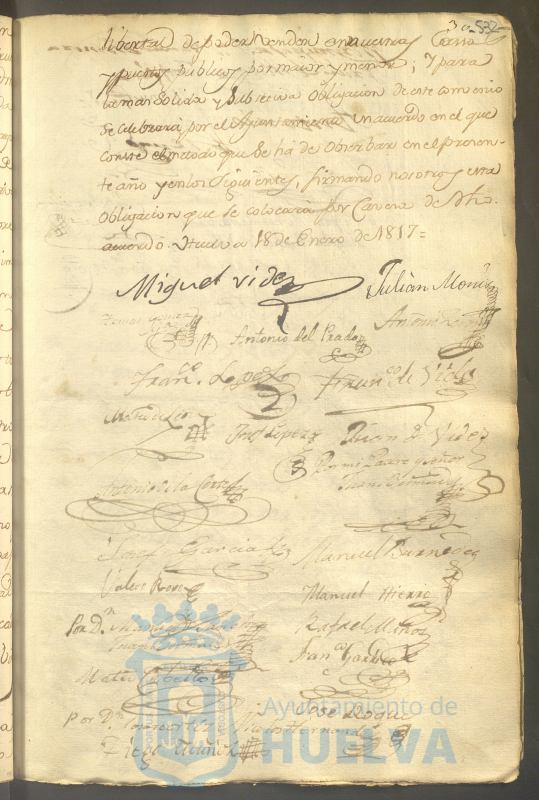 537
libertad de poder vender en nuestras Casas
y puestos publicos por maior y menor; y para
la mas Solida y Subseciva obligacion de este combenio
se celebrará por el Ayuntamiento un acuerdo en el que
conste el metodo que se há de obserbar en el presen-
te año y en los Siguientes, firmando nosotros esta
obligacion que se colocará por Caveza de dho.
acuerdo. Huelva 18 de Enero de 1817=
Miguel Videz Julian
Antonio del Prado Antonio
Franco. Lopez Francco. de Videz
Josef Lopez Juan de Videz
Por mi Padre y señor
Antonio de la Corte Juan
Josef Garcia Manuel
Manuel Hierro
Por Dn. Rafael Muñoz
Juan Franco. Garrido
Mateo
José Roque
Por Dn. Hernandez
Diego Muñoz
Ayuntamiento de
HUELVA